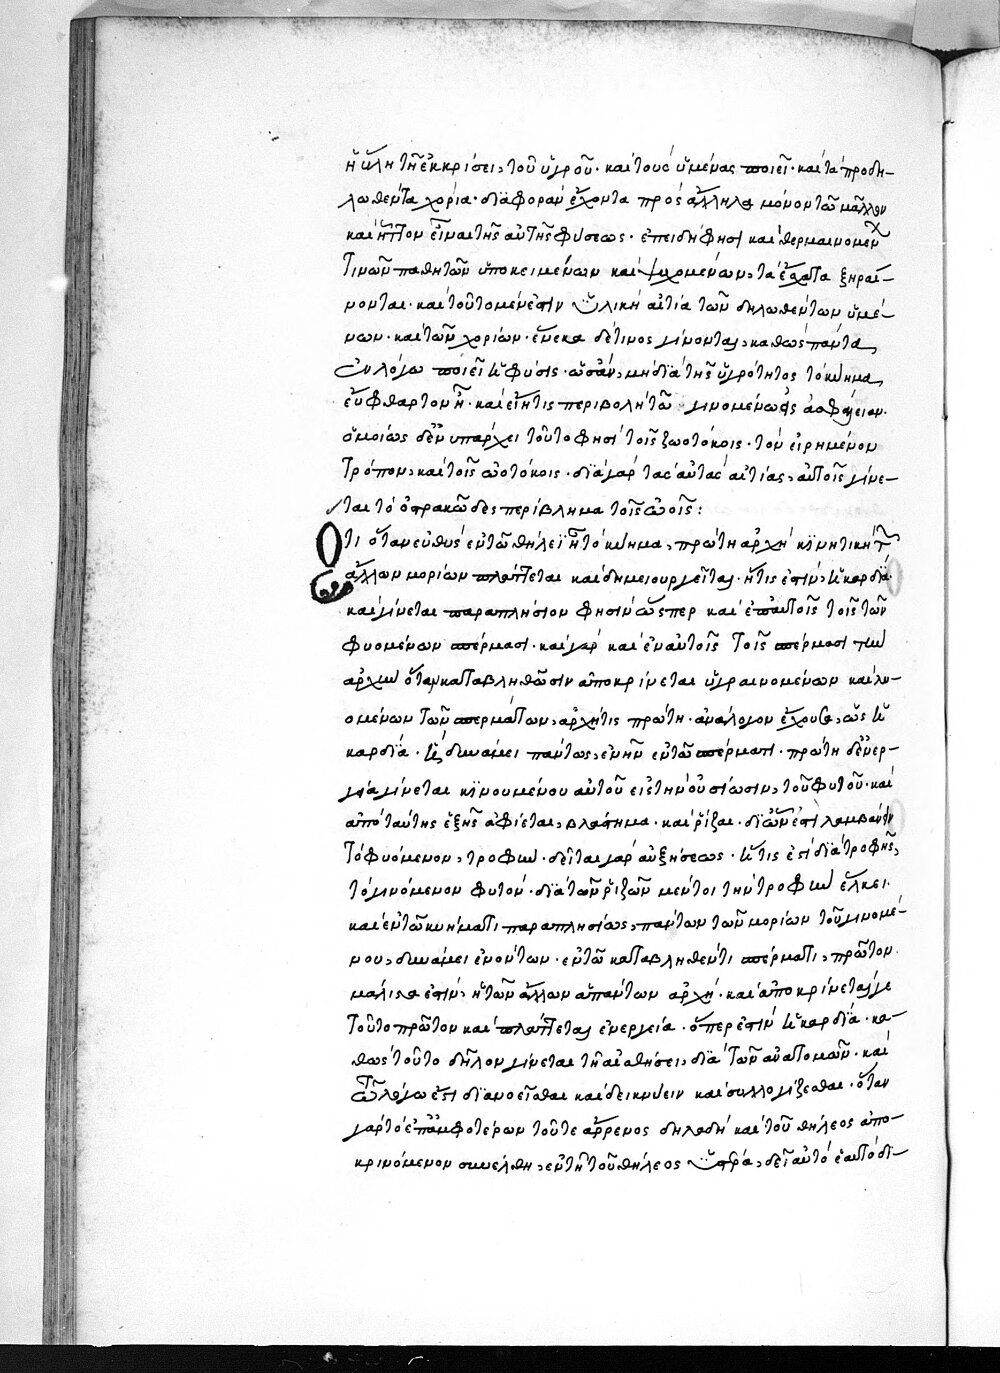 ἡ ὕλη τῆ ἐκκρίσει τοῦ ὑγροῦ· καὶ τοὺς ὑμένας ποιεῖ· καὶ τὰ προδη-
λωθέντα χορία· διαφορὰν ἔχοντα πρὸς ἄλληλα μόνον τῶ μᾶλλον
καὶ ἧττον εἶναι τῆς αὐτῆς φύσεως· ἐπειδὴ φησὶ καὶ θερμαινομέν
τινῶν παθητῶν ὑποκειμένων καὶ ψυχομένων, τὰ ἔσχατα ξηραί-
νονται· καὶ τοῦτο μέν ἐστιν ὑλικὴ αἰτία τῶν δηλωθέντων ὑμέ-
νων· καὶ τῶν χορίων· ἕνεκα δέ τινος γίνονται, καθὼς πάντα
ἐν λόγω ποιεῖ ἡ φύσις· ὡσὰν, μὴ διὰ τῆς ὑγρότητος τὸ κύημα,
εὔφθαρτον ἦ· καὶ εἴη τις περιβολὴ τῶ γινομένω
ὁμοίως δὲ ὑπάρχει τοῦτο φησὶ τοῖς ζωοτόκοις· τὸν εἰρημένον
τρόπον, καὶ τοῖς ὠοτόκοις· διὰ γὰρ τὰς αὐτὰς αἰτίας, αὐτοῖς γίνε-
ται τὸ ὀστρακῶδες περίβλημα τοῖς ὠοῖς:
Ὅτι ὅταν εὐθὺς ἐν τῶ θήλει ἦ τὸ κύημα, πρώτη ἀρχὴ κινητικὴ τ
ἄλλων μορίων πλάττεται καὶ δημιουργεῖται· ἥτις ἐστὶν ἡ καρδία·
καὶ γίνεται παραπλήσιον φησὶν ὥσπερ καὶ ἐπ' αὐτοῖς τοῖς τῶν
φυομένων σπέρμασι· καὶ γὰρ καὶ ἐν αὐτοῖς τοῖς σπέρμασι τὴν
ἀρχὴν ὅταν καταβληθῶσιν ἀποκρίνεται ὑγραινομένων καὶ λυ-
ομένων τῶν σπερμάτων, ἀρχή τις πρώτη· ἀνάλογον ἔχουσα, ὡς ἡ
καρδία· ἣ δυνάμει πάντως, ἐνῆν ἐν τῶ σπέρματι· πρώτη δ' ἐνερ-
γία γίνεται κινουμένου αὐτοῦ εἰς τὴν οὐσίωσιν, τοῦ φυτοῦ· καὶ
ἀπὸ ταύτης ἑξῆς ἀφίεται, βλάστημα· καὶ ῥίζαι· δι' ὧν ἐπιλαμβάνειν
τὸ φυόμενον, τροφὴν· δεῖται γὰρ αὐξήσεως· ἥτις ἐστὶ διὰ τροφῆς,
τὸ γινόμενον φυτόν· διὰ τῶν ῥιζῶν μέντοι τὴν τροφὴν ἕλκει·
καὶ ἐν τῶ κυήματι παραπλησίως, πάντων τῶν μορίων τοῦ γινομέ-
νου, δυνάμει ἐνόντων· ἐν τῶ καταβληθέντι σπέρματι, πρῶτον·
μάλιστα ἐστὶν, ἡ τῶν ἄλλων ἁπάντων ἀρχή· καὶ ἀποκρίνεταί γε
τοῦτο πρῶτον καὶ πλάττεται ἐνεργεία· ὅπερ ἐστὶν ἡ καρδία· κα-
θὼς τοῦτο δῆλον γίνεται τῆ αἰσθήσει, διὰ τῶν ἀνατομῶν· καὶ
τῶ λόγω ἐστὶ διανοεῖσθαι καὶ δεικνύειν καὶ συλλογίζεσθαι· ὅταν
γὰρ τὸ ἐπ' ἀμφοτέρων τοῦ τε ἄρρενος δηλαδὴ καὶ τοῦ θήλεος ἀπο-
κρινόμενον συνέλθη, ἐν τῆ τοῦ θήλεος ὑστέρα, δεῖ αὐτὸ ἑαυτὸ δι-